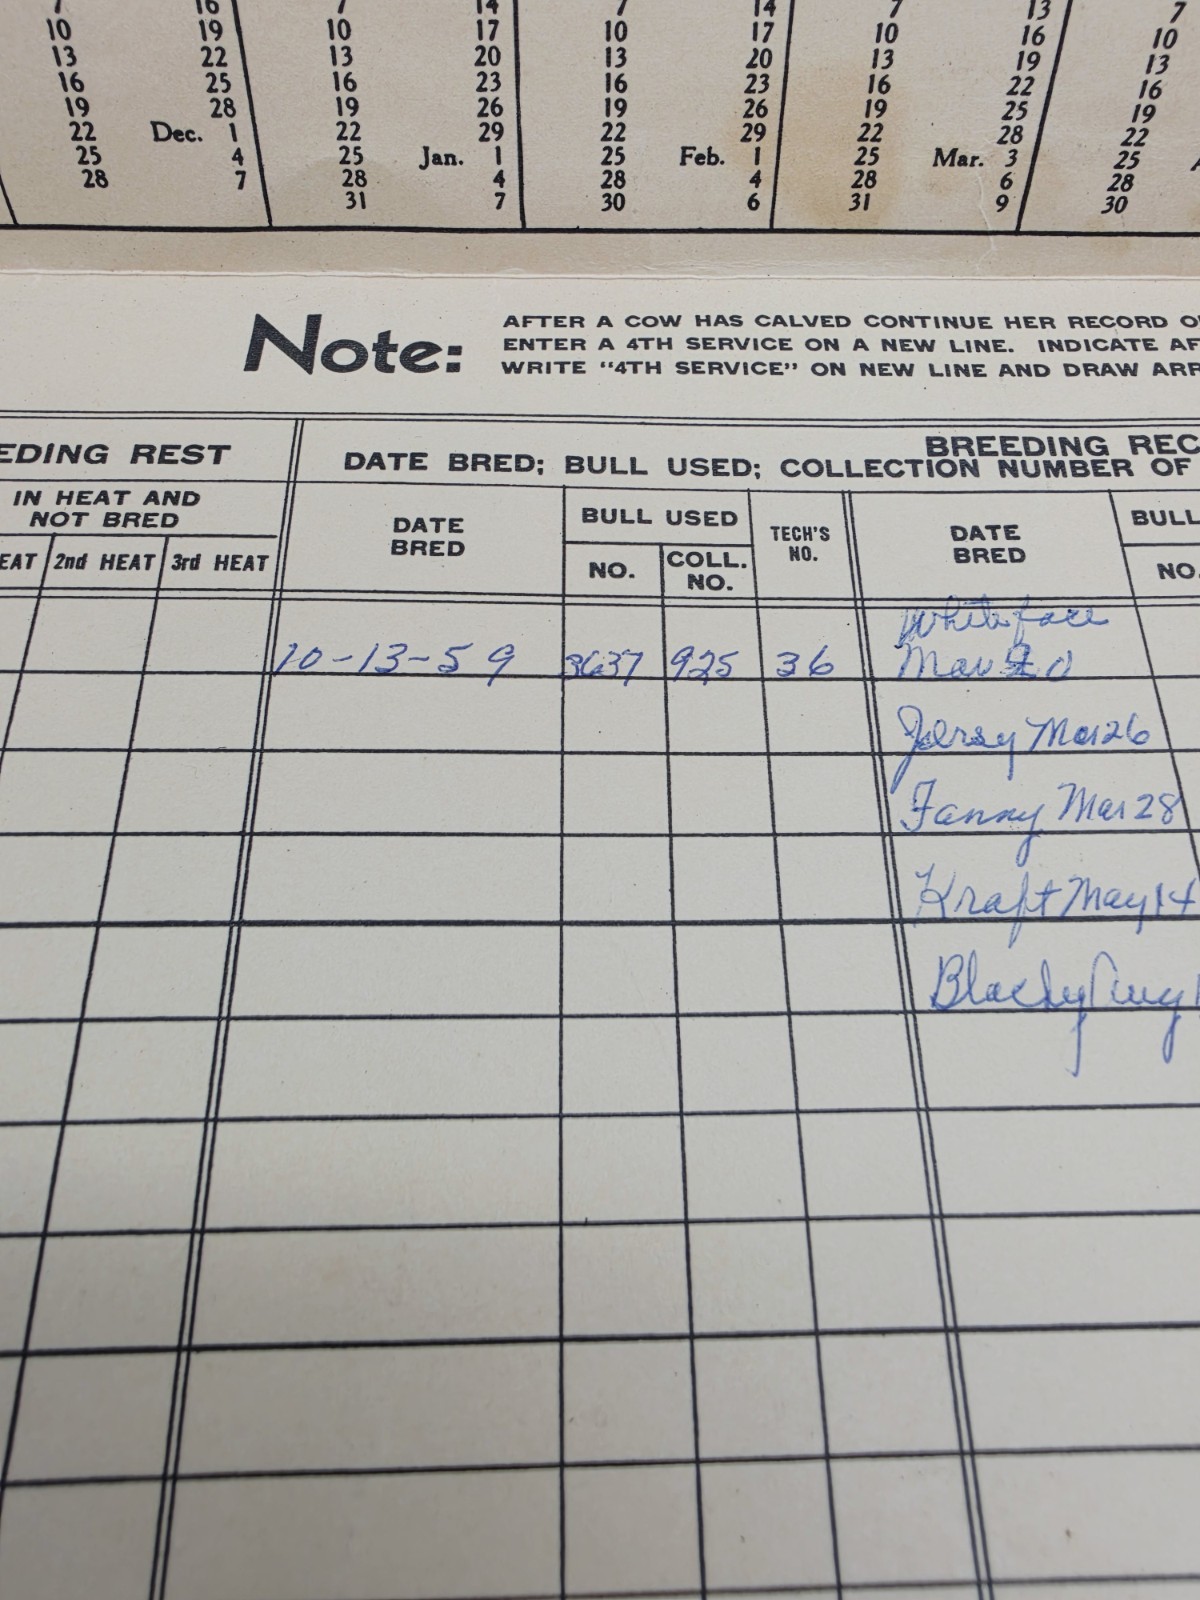 7 16 7 14 7 14 7 13 7
10 19 10 17 10 17 10 16 10
13 22 13 20 13 20 13 19 13
16 25 16 23 16 23 16 22 16
19 28 19 26 19 26 19 25 19
22 Dec. 1 22 29 22 29 22 28 22
25 4 25 Jan. 1 25 Feb. 1 25 Mar. 3 25
28 7 28 4 28 4 28 6 28
31 7 30 6 31 9 30
Note:
AFTER A COW HAS CALVED CONTINUE HER RECORD
ENTER A 4TH SERVICE ON A NEW LINE. INDICATE AF
WRITE "4TH SERVICE" ON NEW LINE AND DRAW ARR
EDING REST
BREEDING REC
DATE BRED; BULL USED; COLLECTION NUMBER OF
IN HEAT AND
NOT BRED
EAT 2nd HEAT 3rd HEAT
DATE
BRED
BULL USED
NO.
COLL.
NO.
TECH'S
NO.
DATE
BRED
BULL
NO.
Whiteface
10-13-59 3637 925 36 Mar 20
Jersy Mar 26
Fanny Mar 28
Kraft May 14
Blacky Aug 1